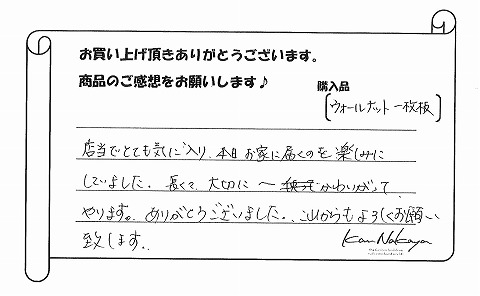 お買い上げ頂きありがとうございます。
商品のご感想をお願いします♪
購入品
ウォールナット一枚板
店当でとても気に入り、本日お家に届くのを楽しみに
していました。長くて、大切に〜
かわいがって
やります。ありがとうございました。これからもよろしくお願い
致します。
Kan Nakaya